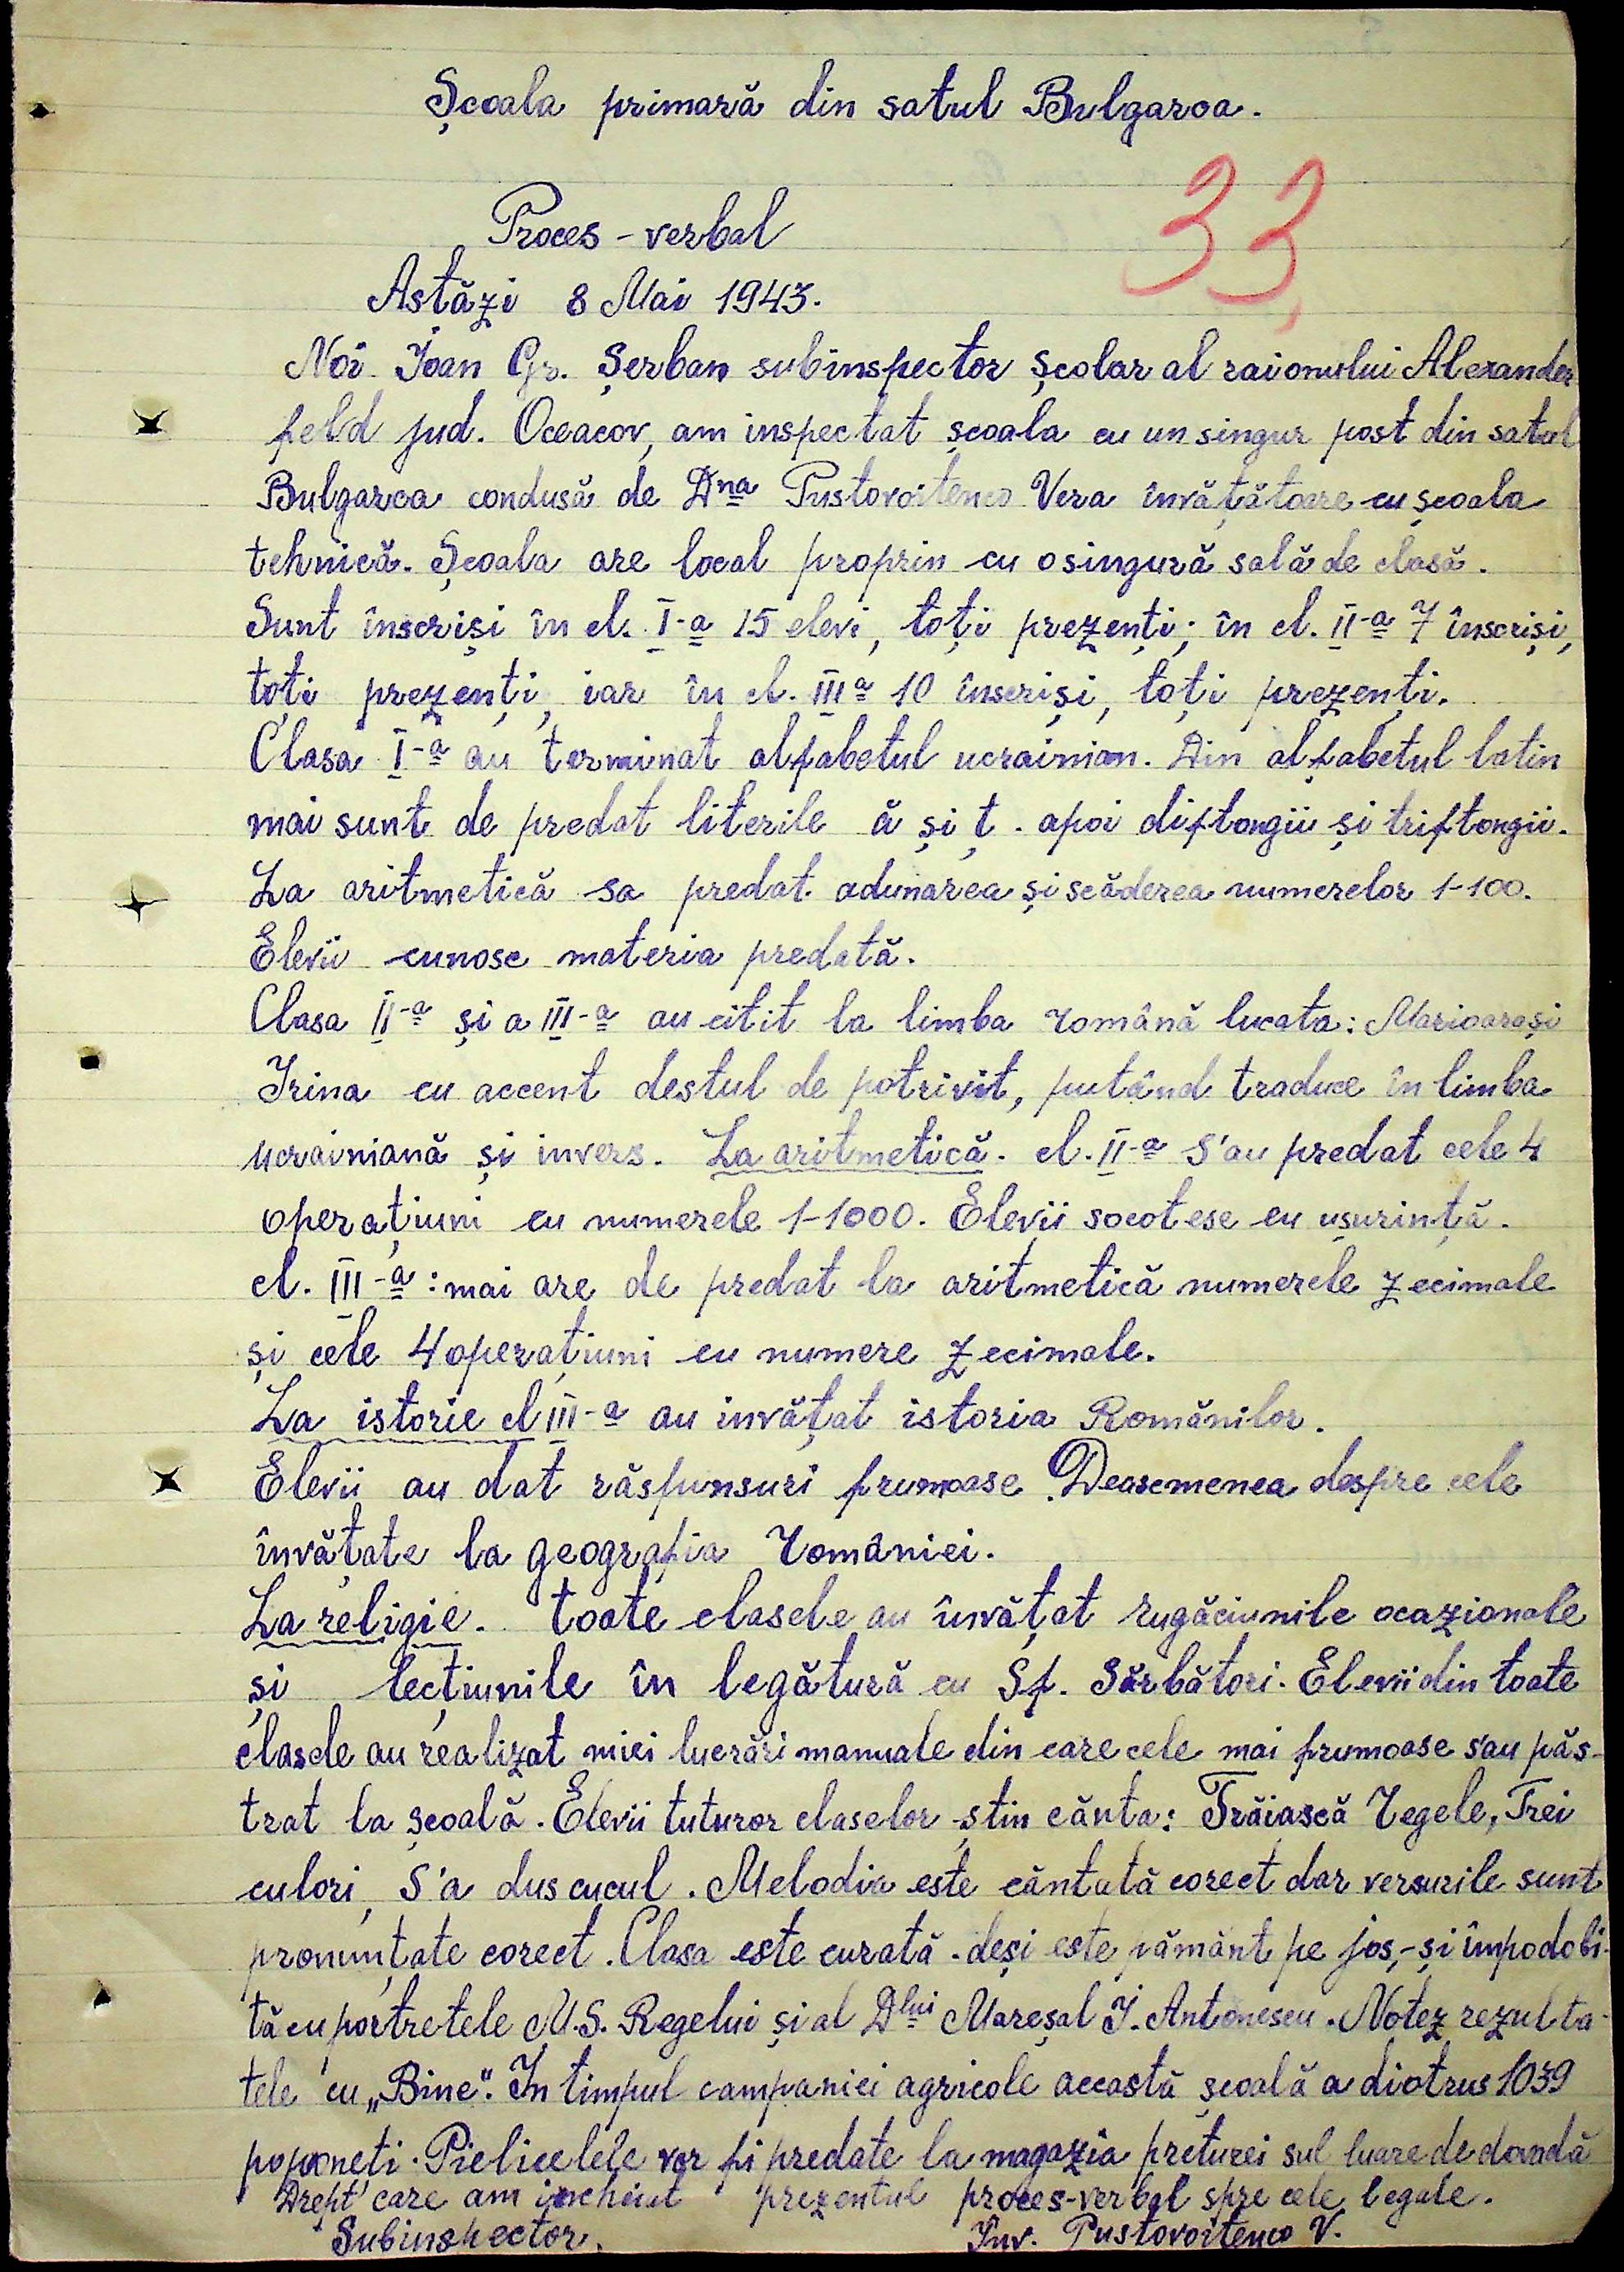 Școala primară din satul Bulgarca.
33
Proces-verbal
Astăzi 8 Mai 1943.
Noi Ioan Gr. Șerban subinspector școlar al raionului Alexander
feld jud. Oceacov, am inspectat școala cu un singur post din satul
Bulgarca condusă de Dna Pustovoitenco Vera învățătoare cu școala
tehnică. Școala are local propriu cu o singură sală de clasă.
Sunt înscriși în cl. I-a 15 elevi, toți prezenți; în cl. II-a 7 înscriși,
toți prezenți, iar în cl. IIIa 10 înscriși, toți prezenți.
Clasa I-a au terminat alfabetul ucrainian. Din alfabetul latin
mai sunt de predat literile ă și ț. apoi diftongii și triftongii.
La aritmetică sa predat adunarea și scăderea numerelor 1-100.
Elevii cunosc materia predată.
Clasa II-a și a III-a au citit la limba română lucata: Marioara și
Irina cu accent destul de potrivit, putând traduce în limba
ucrainiană și invers. La aritmetică. cl. II-a S'au predat cele 4
operațiuni cu numerele 1-1000. Elevii socotesc cu ușurință.
cl. III-a: mai are de predat la aritmetică numerele zecimale
și cele 4 operațiuni cu numere zecimale.
La istorie cl III-a au invățat istoria Românilor.
Elevii au dat răspunsuri frumoase. Deasemenea despre cele
învățate la geografia României.
La religie. toate clasele au învățat rugăciunile ocazionale
și lecțiunile în legătură cu Sf. Sărbători. Elevii din toate
clasele au realizat mici lucrări manuale din care cele mai frumoase s'au păs-
trat la școală. Elevii tuturor claselor știu cânta: Trăiască Regele, Trei
culori, S'a dus cucul. Melodia este cântată corect dar versurile sunt
pronunțate corect. Clasa este curată - deși este pământ pe jos, - și împodobi-
tă cu portretele M.S. Regelui și al Dlui Mareșal I. Antonescu. Notez rezulta-
tele cu „Bine". In timpul campaniei agricole această școală a distrus 1039
poponeți. Pielicelele vor fi predate la magazia preturei sul luare de dovadă
Drept care am incheiat prezentul proces-verbal spre cele legale.
Subinspector. Înv. Pustovoitenco V.